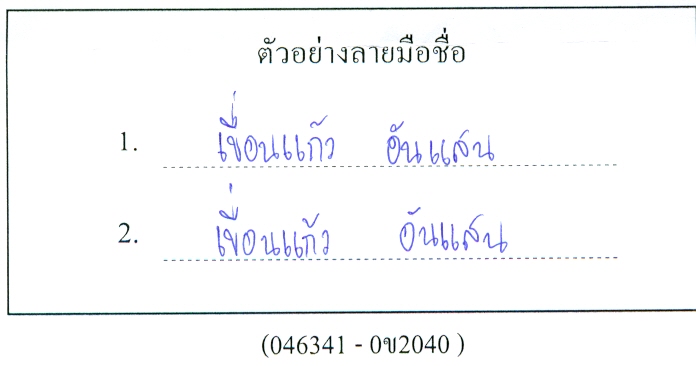 ตัวอย่างลายมือชื่อ
1. เขื่อนแก้ว อันแสน
2. เขื่อนแก้ว อันแสน
(046341 - 0ข2040 )